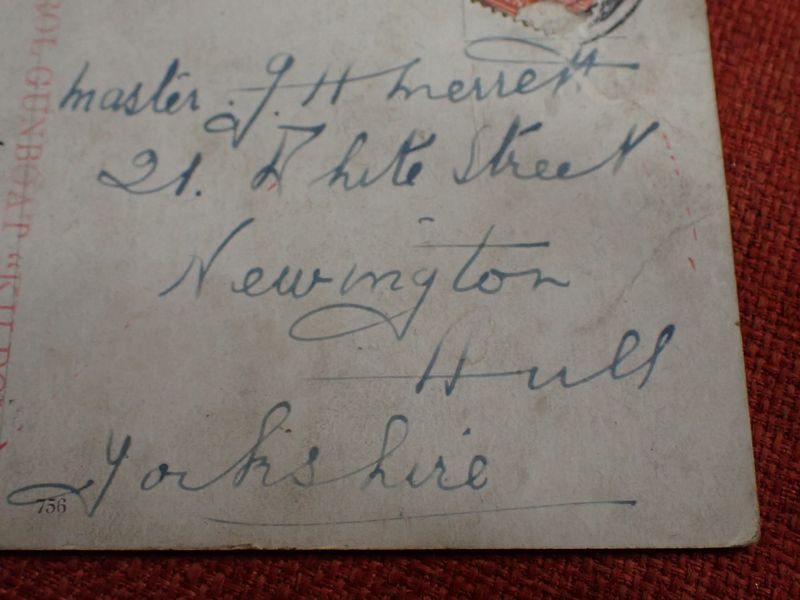 Master. J. H Merrett
21. White Street
Newington
Hull
Yorkshire
756
GUNBOAT